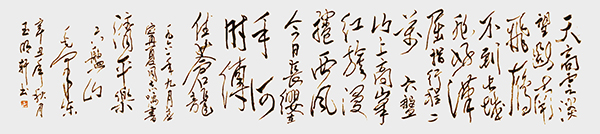 天高雲淡
望斷南
飛雁
不到長城
非好漢
屈指行程二
萬 六盤
山上高峰
紅旗漫
捲西風
今日長纓在
手 何
時縛
住蒼龍
一九六一年九月應
寧夏同志囑書
清平樂
六盤山
毛澤東
辛丑年秋月
玉明軒書